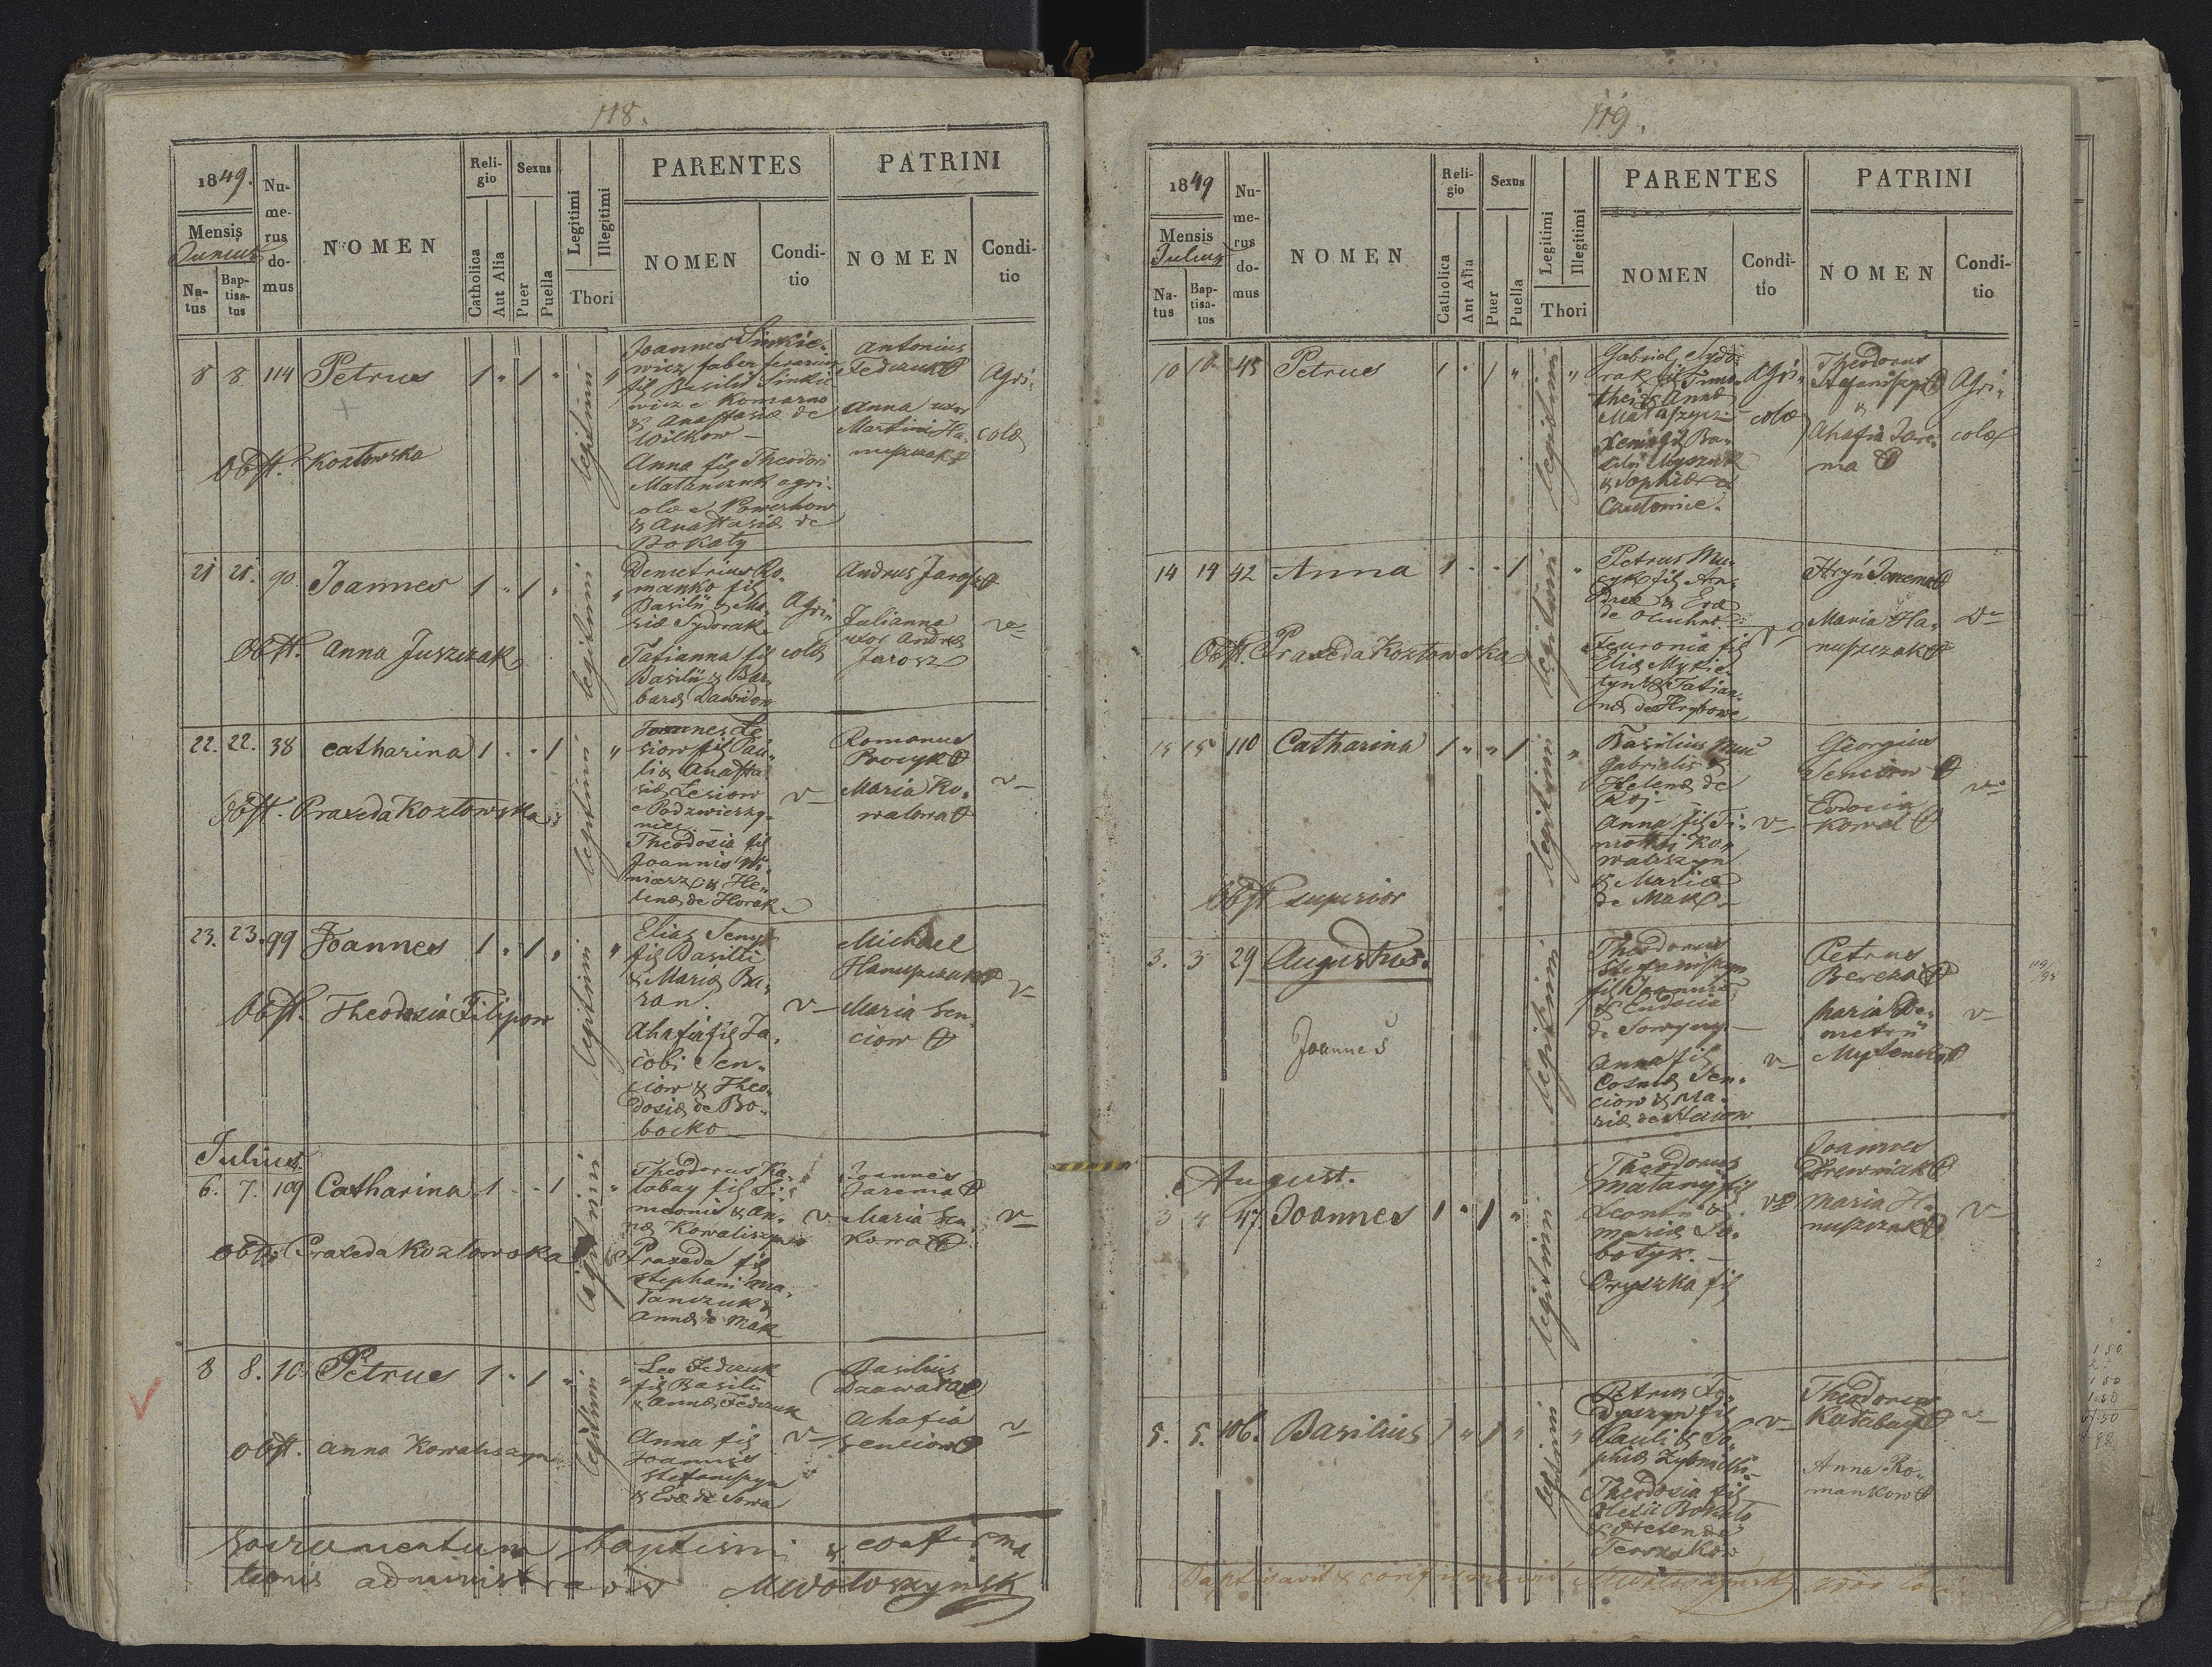 118.
1849.
Mensis
Junius
Na-
tus
Bap-
tisa-
tus
Nu-
me-
rus
do-
mus
NOMEN
Reli-
gio
Catholica
Aut Alia
Sexus
Puer
Puella
Legitimi
Illegitimi
Thori
PARENTES
NOMEN
Condi-
tio
PATRINI
NOMEN
Condi-
tio
8 8 114 Petrus 1 " 1 "
Obst. Kozłowska
legitimi
Joannes Sinkie-
wicz faber ferarius
fil Basilii Sinkie
wicz e Komarno
& Anastasiæ de
Wilkow
Anna fil Theodori
Matanczuk agri-
colæ e Powerchow
& Anastasiæ de
Bokaty
Antonius
Fedczuk
Anna uxor
Martini Ha-
nuszczak
Agri-
colæ
21 21. 90. Joannes 1 " 1 "
Obst. Anna Juszczak
legitimi
Demetrius Ro-
manko fil
Basilii & Ma-
riæ Sydorak
Tatianna fil
Basilii & Bar-
baræ Dawidow
Agri-
colæ
Andreas Jarosz
Julianna
uxor Andreæ
Jarosz
22. 22. 38 Catharina 1 . " 1
Obst. Praxeda Kozłowska
legitimi
Joannes Le
siow fil Pau-
li & Anasta
siæ Lesiow
e Podzwierzy-
niec
Theodosia fil
Joannis
& He-
lenæ de Horak
Romanus
Procyk
Maria Ko-
walowa
23. 23. 99 Joannes 1 " 1 "
Obst. Theodosia Filipow
legitimi
Elias Senyk
fil Basilii
& Mariæ Ba-
ran.
Ahafia fil Ja-
cobi Sen-
ciow & Theo-
dosiæ de Bo-
bocko
Michael
Hanuszczak
Maria Sen-
ciow
Julius.
6. 7. 109 Catharina 1 . . 1
Obst. Praxeda Kozlowska
legitimi
Theodorus Ka-
tabay fil Si-
meonis & An-
næ Kowaliszyn
Praxeda fil
Stephani Ma-
tanczuk &
Annæ de Mak
Joannes
Jarema
Maria
8 8. 10. Petrus 1 " 1 "
Obst. Anna Kowaliszyn
legitimi
Leo Fedczuk
fil Basilii
& Annæ Fedczuk
Anna fil
Joannis
Stefaniszyn
& Evæ de Sowa
Basilius
Dzawada
Ahafia
Senciow
Sacramentum baptismi & confirma
tionis administravit MWołoszynsk
119.
1849
Mensis
Julius
Na-
tus
Bap-
tisa-
tus
Nu-
me-
rus
do-
mus
NOMEN
Reli-
gio
Catholica
Aut Alia
Sexus
Puer
Puella
Legitimi
Illegitimi
Thori
PARENTES
NOMEN
Condi-
tio
PATRINI
NOMEN
Condi-
tio
10 10 45 Petrus 1 . 1 "
legitimi
Gabriel Sydo-
rak fil Timo-
thei & Annæ
Xenia fil Ba-
silii
& Sophiæ
Agri-
colæ
Theodorus
Stefaniszyn
&
Ahafia Jare-
ma
Agri-
colæ
14 14 42 Anna 1 . . 1
Obst. Praxeda Kozłowska
legitimi
Petrus Mu-
cyk fil An-
dreæ & Evæ
de
Feuronia fil
Eliæ
& Tatian-
næ de
Hryń Jarema
Maria Ha-
nuszczak
15 15 110 Catharina 1 " " 1
Obst superior
legitimi
Basilius
Gabrielis &
Helenæ de
Koj
Anna fil Ti-
mothei Ko-
waliszyn
& Mariæ
de Mak
Georgius
Senciow
Evdocia
Kowal
3. 3 29 Augustus.
Joannes
legitimi
Theodorus
Stefaniszyn
fil Joannis
& Eudociæ
de
Anna fil
Cosmæ Sen-
ciow & Ma-
riæ de
Petrus
Bereza
Maria De-
metrii
August.
3 4 47 Joannes 1 " 1 "
legitimi
Theodorus
Matanij fil
Leontii &
Mariæ So-
botyk.
Oryszka fil
Joannes
Drewniak
Maria Ha-
nuszczak
5. 5. 106. Basilius 1 " 1 "
legitimi
Petrus
fil
Pauli & So-
phiæ
Theodosia fil
& Helenæ de
Theodorus
Katabay
Anna Ro-
mankow
Baptisavit & confirmavit MWołoszynsky